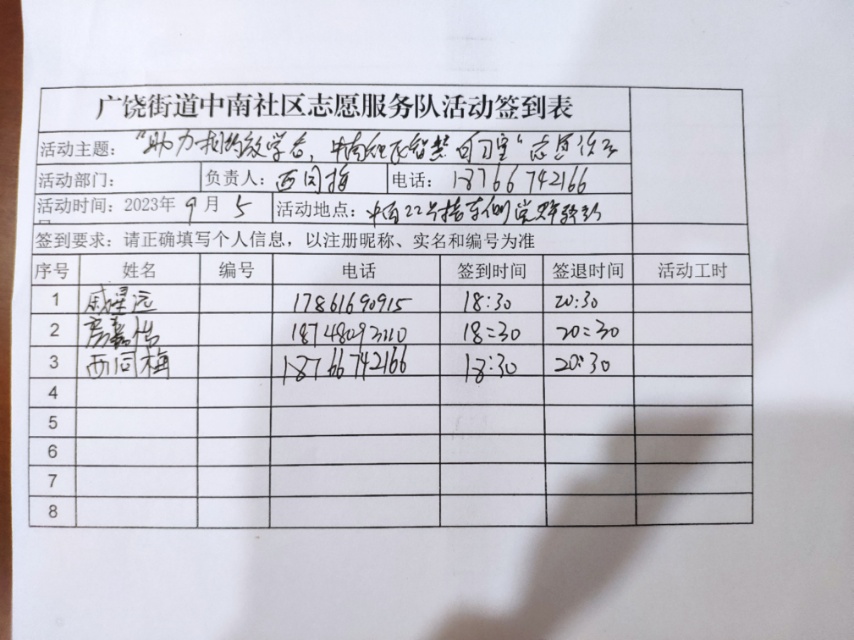 广饶街道中南社区志愿服务队活动签到表
活动主题：“助力 学 ，中南 智慧自习室”志愿
活动部门： 负责人：西同梅 电话：18766742166
活动时间：2023年9月5 活动地点：中南22号楼东侧党群
签到要求：请正确填写个人信息，以注册昵称、实名和编号为准
序号 姓名 编号 电话 签到时间 签退时间 活动工时
1 星远 17861690915 18:30 20:30
2 嘉怡 18:30 20:30
3 西同梅 18766742166 18:30 20:30
4
5
6
7
8